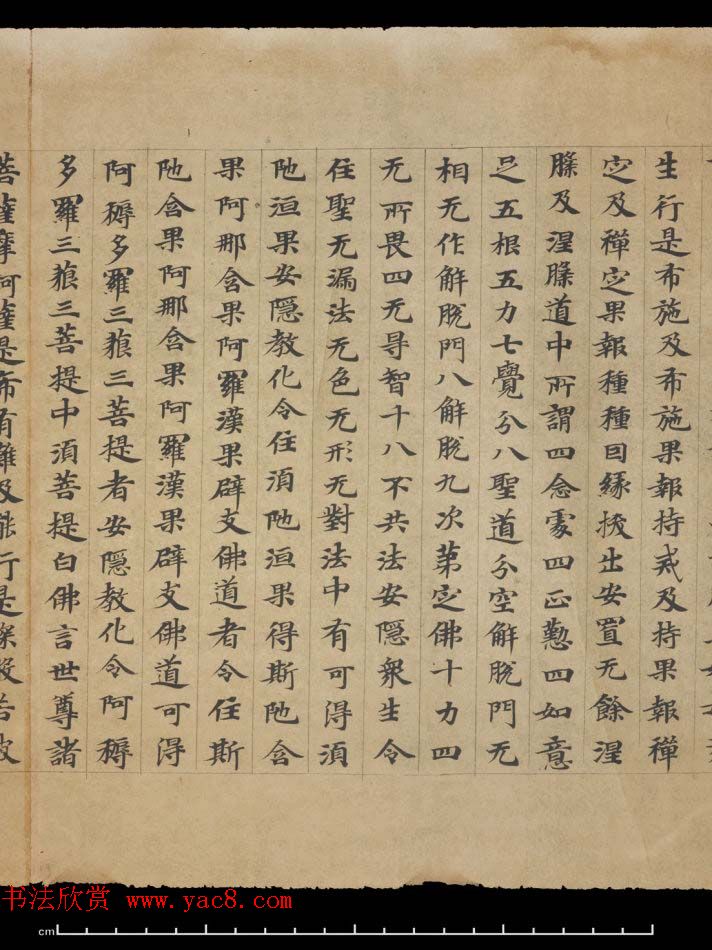 生行是布施及布施果報持戒及持果報禪
㝎及禪㝎果報種種因緣拔出安置无餘涅
槃及涅槃道中所謂四念處四正懃四如意
足五根五力七覺分八聖道分空解脫門无
相无作解脫門八解脫九次第㝎佛十力四
无所畏四无㝵智十八不共法安隱衆生令
住聖无漏法无色无形无對法中有可得湏
陁洹果安隱教化令住湏陁洹果得斯陁含
果阿那含果阿羅漢果辟支佛道者令住斯
陁含果阿那含果阿羅漢果辟支佛道可得
阿耨多羅三藐三菩提者安隱教化令阿耨
多羅三藐三菩提中湏菩提白佛言世尊諸
菩薩摩訶薩是希有難及能行是深般若波
书法欣赏 www.yac8.com
cm